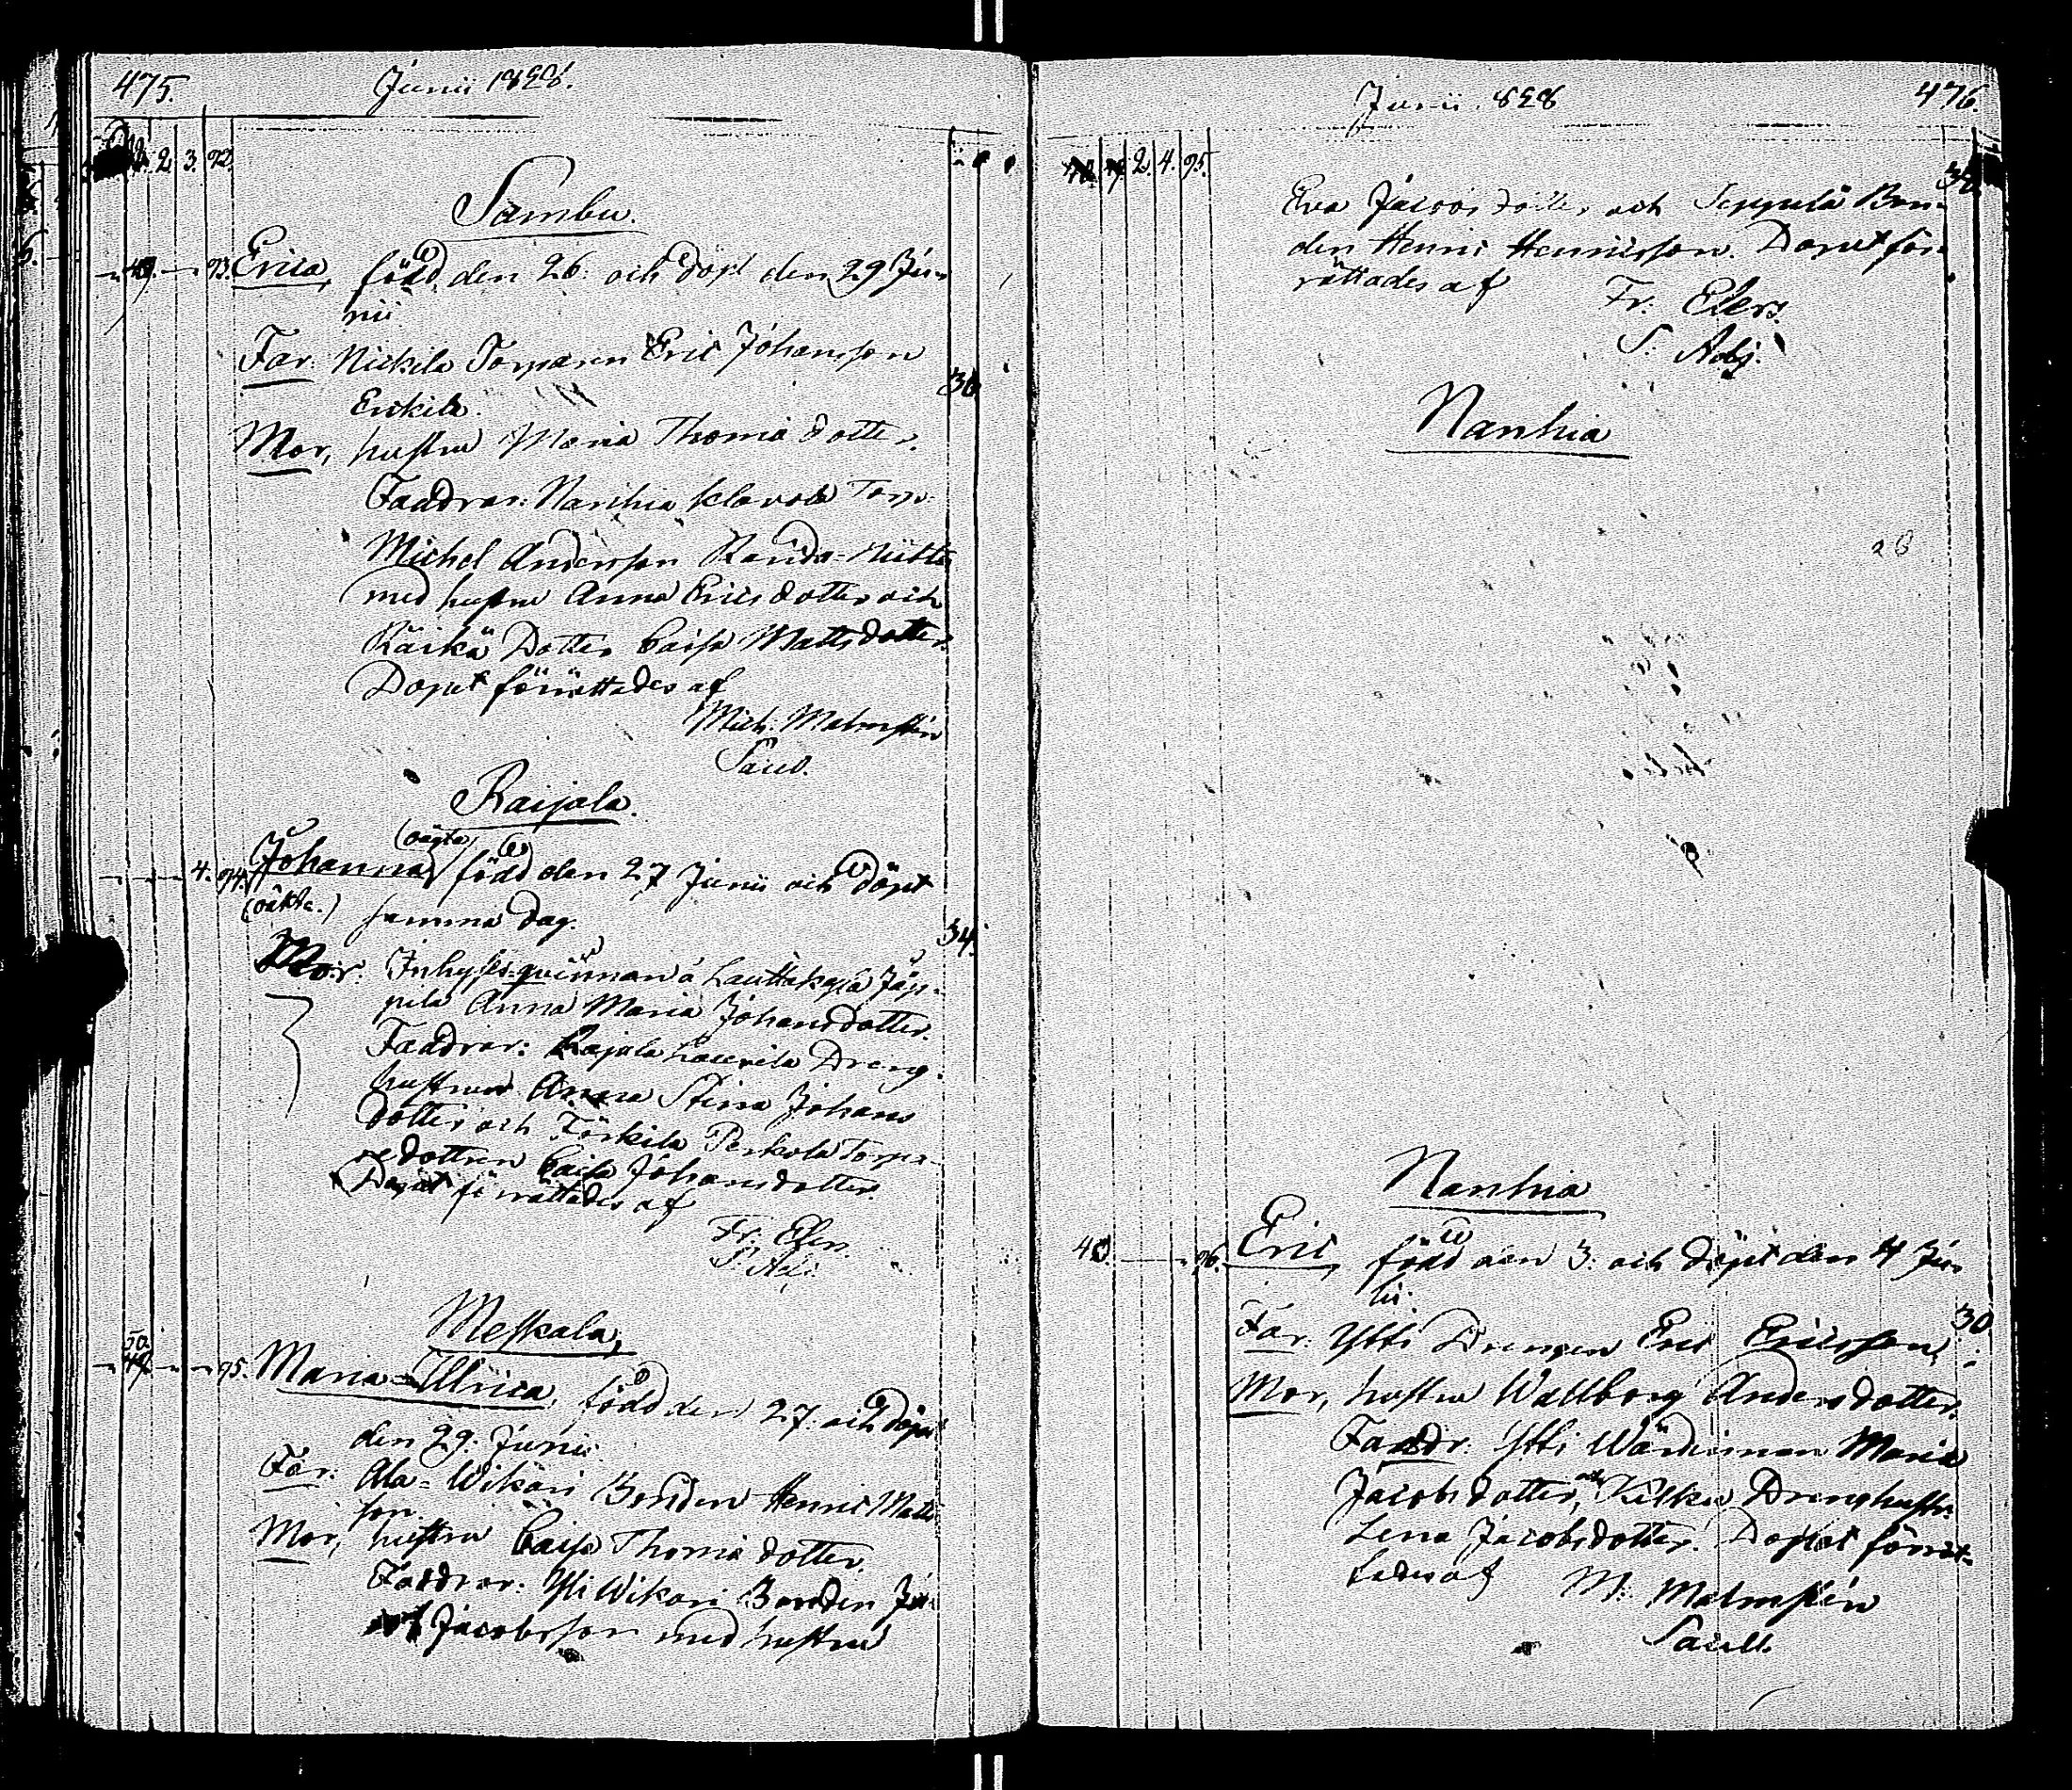 475.
Junii 1838.
2. 3. 92.
Sambu.
93. Erica, född den 26. och döpt den 29 Ju-
nii
Far: Nickila Torparen Eric Johansson
Erikila.
36
Mor, hustru Maria Thomædotter.
Faddrar: Nanhia Torp.
Michel Andersson
med hustru Anna Ericsdotter och
Räikä Dotter Caisa Mattsdotter.
Dopet förrättades af
Mich: Malmstén
Sacell.
Raijala.
(oägta)
4. 94. Johanna, född den 27 Junii och döpt
(oäkta.) samma dag.
34.
Mor: Inhyses qvinnan å Lauttakylä Jäp-
pilä Anna Maria Johansdotter.
Faddrar: Raijala Laurila Dreng-
hustrun Anna Stina Johans
dotter och Perkola Torpa-
redottren Caisa Johansdotter.
Dopet förrättades af
Fr: Elers.
S. Adj.
Meskala,
50.
49. 95. Maria Ulrica, född den 27. och döpt
den 29. Junii.
Far: Ala-Wikari Bonden Henric Matts
son.
Mor, hustru Caisa Thomædotter.
Faddrar: Yli Wikari Bonden
Jacobsson med hustru
Junii. 838
476.
2. 4. 95.
34.
Eva Jacobsdotter och Seppälä Bon-
den Henric Henricsson. Dopet för-
rättades af
Fr: Elers.
S. Adj.
Nanhia
Nanhia
40. 96. Eric, född den 3. och döpt den 4 Ju-
lii.
30
Far: Ytti Drengen Eric Ericsson,
Mor, hustru Wallborg Andersdotter.
Faddr: Ytti Wärdinnan Maria
Jacobsdotter, och Kilkku Drenghustr.
Lena Jacobsdotter. Dopet förrät-
tades af
M: Malmstén
Sacell.